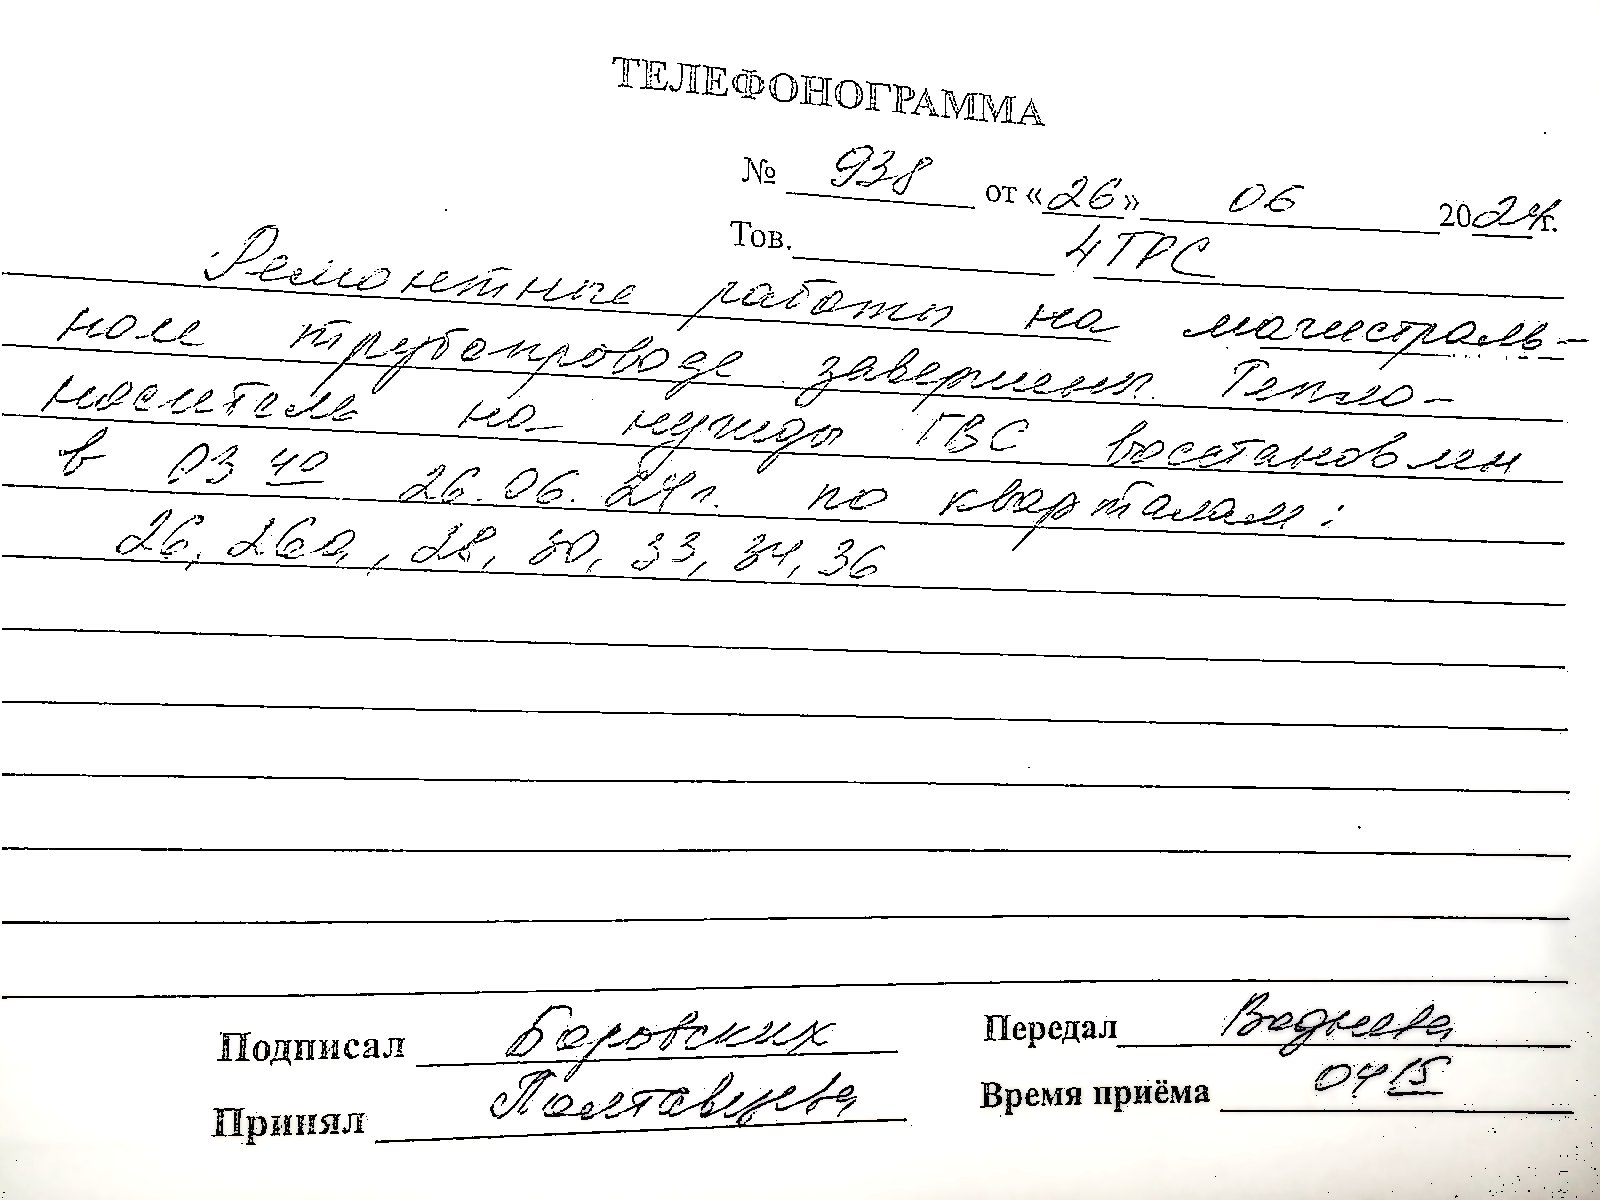 ТЕЛЕФОНОГРАММА
№ 938 от «26» 06 2024г.
Тов. 4 ТРС
Ремонтные работы на магистраль-
ном трубопроводе завершены. Тепло-
носитель на нужды ГВС восстановлен
в 03 40 26.06.24г. по кварталам:
26, 26а, 28, 30, 33, 34, 36
Подписал Боровских Передал
Принял Полтавцева Время приёма 04 15